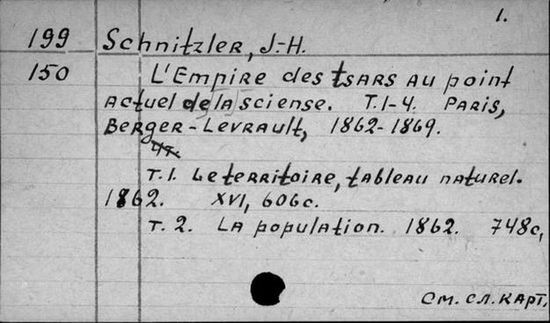 1.
199 Schnitzler, J.-H.
150 L'Empire des tsars au point
actuel de la sciense. T.1-4. Paris,
Berger-Levrault, 1862-1869.
T.1. Le territoire, tableau naturel.
1862. XVI, 606c.
T. 2. La population. 1862. 748c,
См. сл. карт.